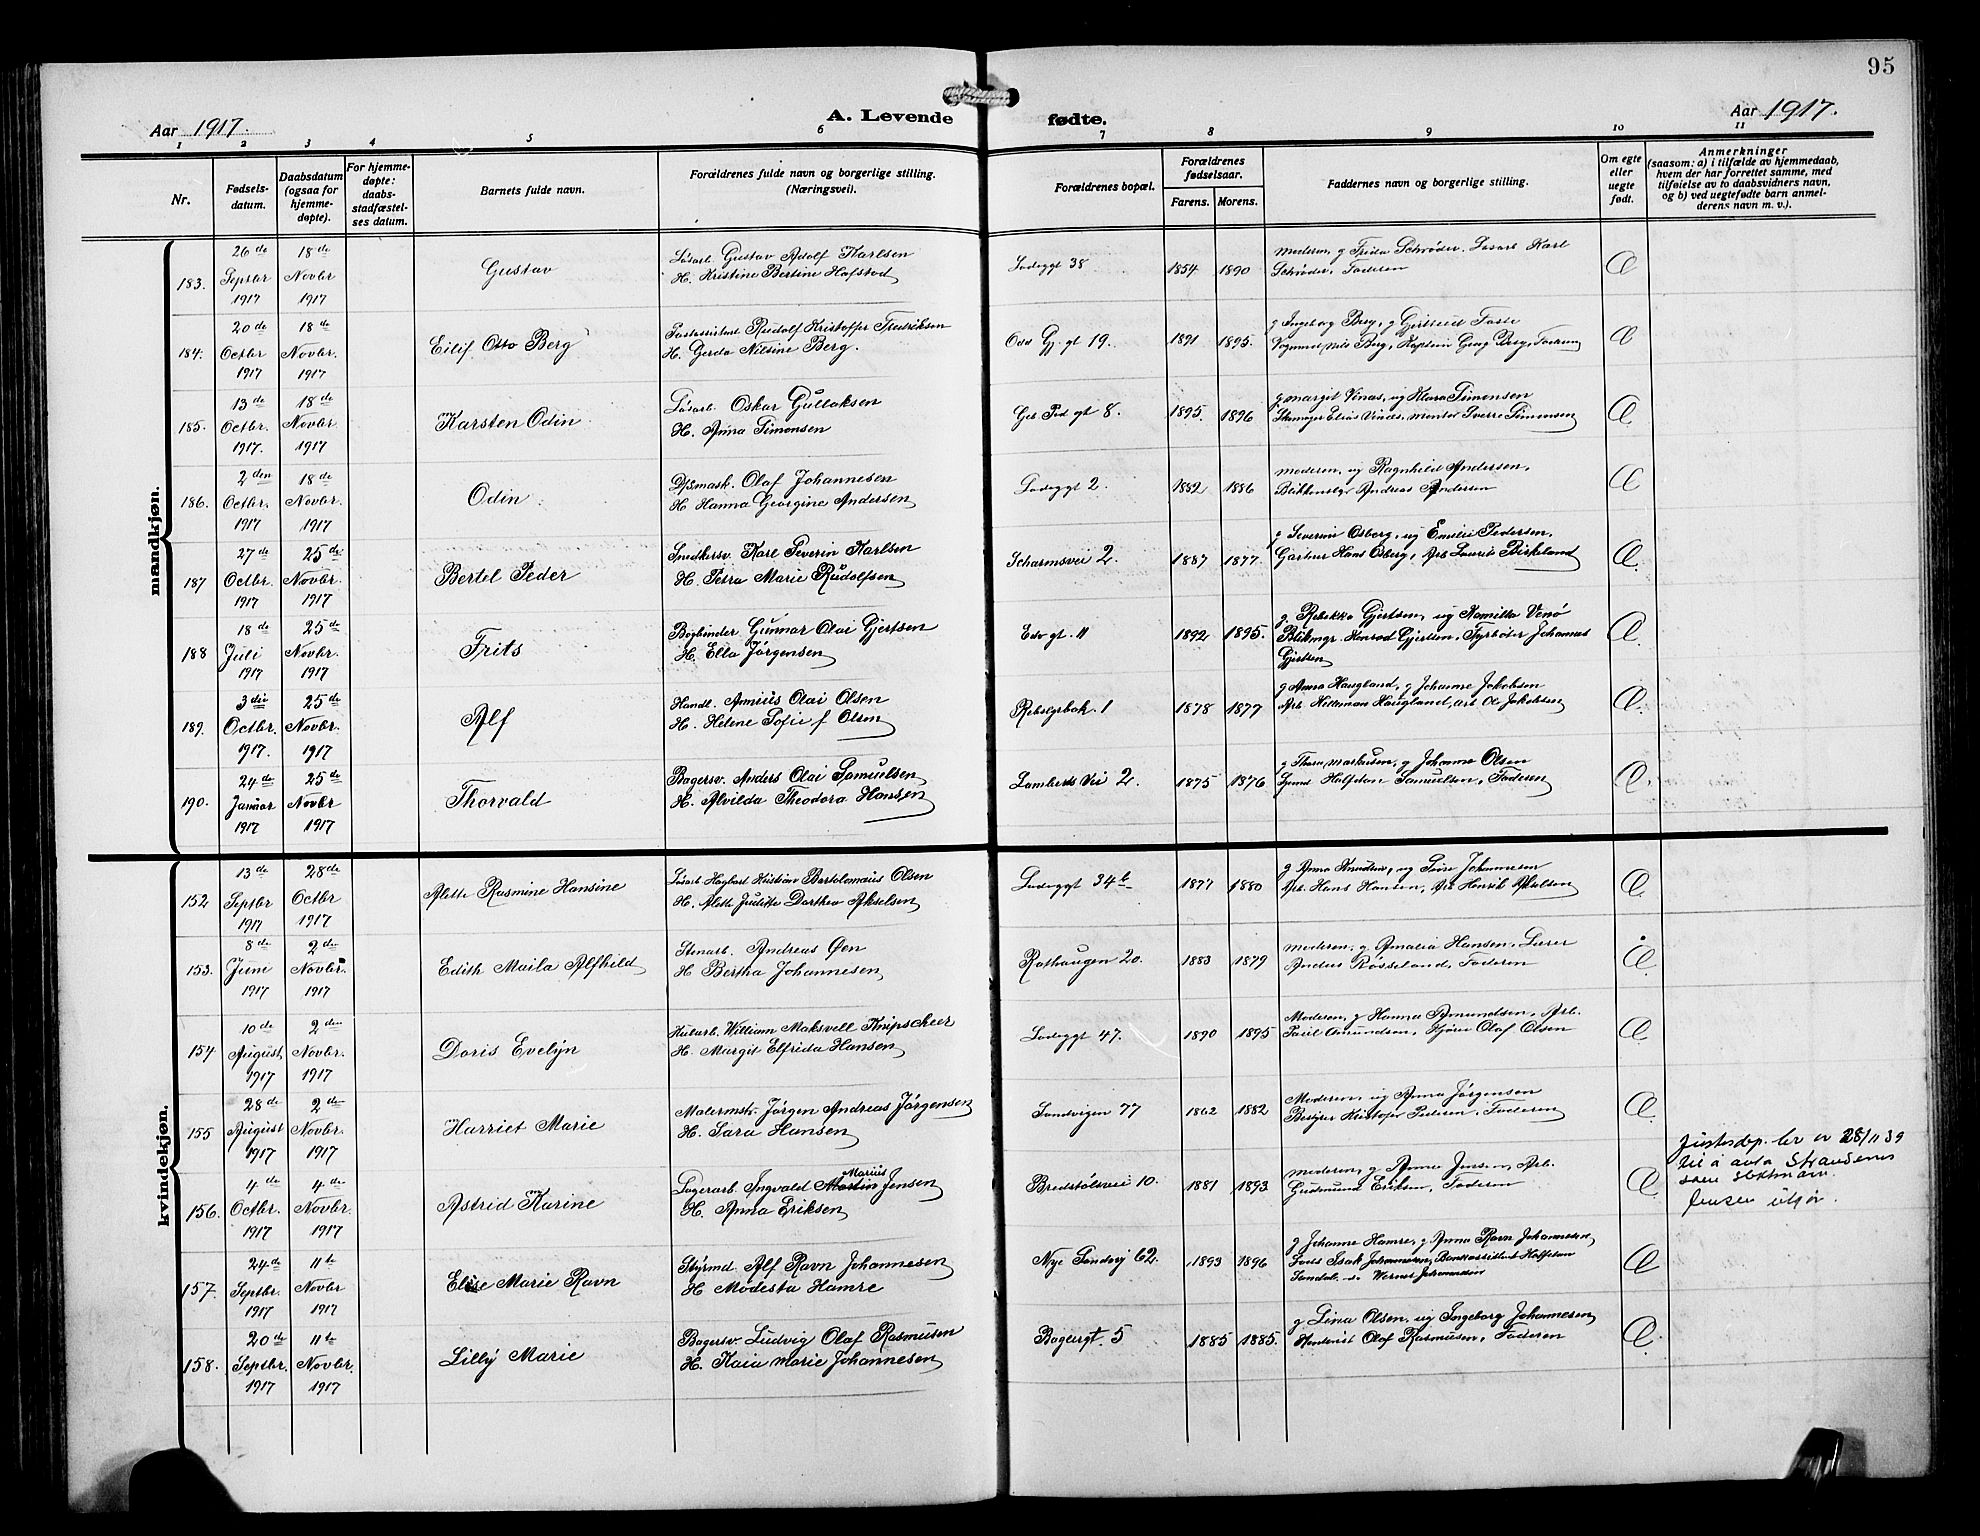 95
Aar 1917.
A. Levende fødte.
Aar 1917.
1 2 3 4 5 6 7 8 9 10 11
Nr.
Fødsels-
datum.
Daabsdatum
(ogsaa for
hjemme-
døpte).
For hjemme-
døpte:
daabs-
stadfæstel-
ses datum.
Barnets fulde navn.
Forældrenes fulde navn og borgerlige stilling.
(Næringsvei).
Forældrenes bopæl.
Forældrenes
fødselsaar.
Farens. Morens.
Faddernes navn og borgerlige stilling.
Om egte
eller
uegte
født.
Anmerkninger
(saasom: a) i tilfælde av hjemmedaab,
hvem der har forrettet samme, med
tilføielse av to daabsvidners navn,
og b) ved uegtefødte barn anmel-
derens navn m. v.).
mandkjøn.
183. 26de Septbr 1917 18de Novbr 1917 Gustav
Løsarb. Gustav Adolf Karlsen
H. Kristine Bertine Hafstad
Ladeggt 38 1854 1890
Moderen, g Frida Schrøder. Løsarb Karl
Schrøder, Faderen
Æ
184. 20de Octbr 1917 18de Novbr. 1917 Eilif Otto Berg
Postassistent Rudolf Kristoffer Fredriksen
H. Gerda Nilsine Berg.
Odd Gj. gt 19. 1891 1895.
g Ingeborg Berg, g Gertrud Foste
Vognmd Nils Berg, Kaptein Georg Berg, Faderen
Æ
185. 13de Octbr. 1917. 18de Novbr. 1917 Karsten Odin
Løsarb. Oskar Gullaksen
H. Anna Simonsen
Geb Ped gt 8. 1895. 1896
g Margit Vinas, ug Klara Simonsen
Elias Vinds, Montør Sverre Simonsen
Æ
186. 2den Octbr. 1917 18de Novbr. 1917 Odin
Dpsmask. Olaf Johannesen
H Hanna Georgine Andersen
Ladeggt 2. 1882 1886
Moderen, ug Ragnhild Andersen,
Blikkenslgr Andreas Andersen
Æ
187 27de Octbr. 1917 25de Novbr. 1917 Bertel Peder
Snedkersv. Karl Severin Karlsen
H. Petra Marie Rudolfsen
Scharmsvei 2. 1887 1877.
g Severine Osberg, ug Emilie Pedersen,
Gartner Hans Osberg, Arb Laurits Birkeland
Æ
188 18de Juli 1917 25de Novbr. 1917 Frits
Bogbinder Gunnar Olai Gjertsen
H. Ella Jörgensen
Edv gt. 11 1892 1895.
g. Rebekka Gjertsen, ug Kamilla Venö
Blikmgr. Konrad Gjertsen, Fyrbøder Johannes
Gjertsen
Æ
189. 3die Octbr. 1917. 25de Novbr. 1917 Alf
Handl. Annius Olai Olsen
H. Helene Sofie f Olsen
Rebslgrbak. 1 1878 1877
g Anna Haugland, g Johanne Jakobsen
Arb Haugland, arb Ole Jakobsen
Æ
190. 24de Januar 1917 25de Novbr 1917 Thorvald
Bagersv. Anders Olai Samuelsen
H. Alvilda Theodora Hansen
Lamberts Vei 2. 1875 1876
g Thora Markusen, g Johanne Olsen
Halfdan Samuelsen, Faderen
Æ
kvindekjøn.
152 13de Septbr 1917 28de Octbr 1917 Alette Rasmine Hansine
Løsarb Hagbart Kristian Bartolomæus Olsen
H. Alette Juditte Dorthea Akselsen
Ladeggt 34b 1877 1880
g Anna Knudsen, ug Johannesen
Arb. Hans Hansen, Arb Henrik Akselsen
Æ
153. 8de Juni 1917 2den Novbr. 1917 Edith Maila Alfhild
Stenarb. Andreas Øen
H Bertha Johannesen
Rothaugen 20. 1883 1879
Moderen, g Amalia Hansen, Lærer
Anders Røsseland, Faderen
Æ
154. 10de August 1917 2den Novbr. 1917 Doris Evelyn
William Maksvell Knipscheer
H. Margit Elfrida Hansen
Ladeggt 47. 1890 1895
Moderen, g Hanna Amundsen, Arb.
Paul Amundsen, Olaf Olsen
Æ
155 28de August 1917 2den Novbr. 1917 Harriet Marie
Malermst. Jörgen Andreas Jörgensen
H. Sara Hansen
Sandvigen 77 1862 1882
Moderen, ug Anna Jörgensen
Kristofer Pedersen, Faderen
Æ
156. 4de Octbr. 1917 4de Novbr. 1917 Astrid Karine
Lagerarb. Ingvald Martin Marius Jensen
H. Anna Eriksen
Bredstølsvei 10. 1881 1893
Moderen, g Anna Jensen, Arb.
Gudmund Eriksen, Faderen
Æ
Justisdep. br av 28/11 39
til å anta Strandenes
som slektsnavn.
Jensen utgår.
157. 24de Septbr. 1917 11te Novbr 1917 Elise Marie Ravn
Styrmd. Alf Ravn Johannesen
H Modesta Hamre
Nye Sandvg 62. 1893 1896
g Johanne Hamre, g Anna Ravn Johannesen,
Lods Isak Johannesen, Bankassistent Halfdan
Sandal. Werner Johannesen
Æ
158. 20de Septbr. 1917 11te Novbr. 1917 Lilly Marie
Bagersv. Ludvig Olaf Rasmusen
H. Kaia Marie Johannesen
Bagergt. 5 1885 1885.
g Lina Olsen, ug Ingeborg Johannesen
Olaf Rasmusen, Faderen
Æ